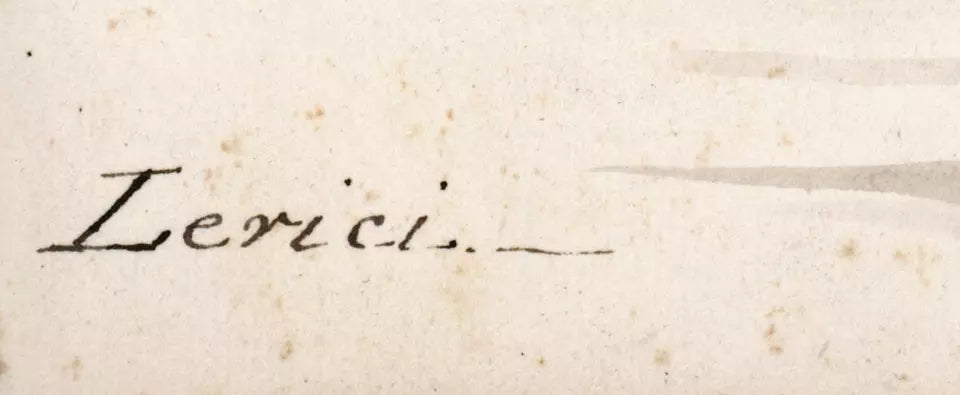 Lerici. —